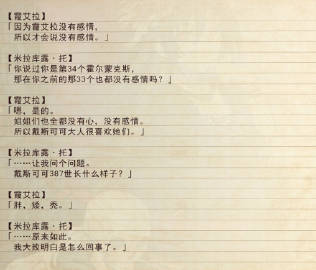 【霞艾拉】
「因为霞艾拉没有感情，
所以才会说没有感情。」
【米拉库露·托】
「你说过你是第34个霍尔蒙克斯，
那在你之前的那33个也都没有感情吗？」
【霞艾拉】
「嗯，是的。
姐姐们也全都没有心，没有感情。
所以戴斯可可大人很喜欢她们。」
【米拉库露·托】
「……让我问个问题。
戴斯可可387世长什么样子？」
【霞艾拉】
「胖，矮，秃。」
【米拉库露·托】
「……原来如此。
我大致明白是怎么回事了。」